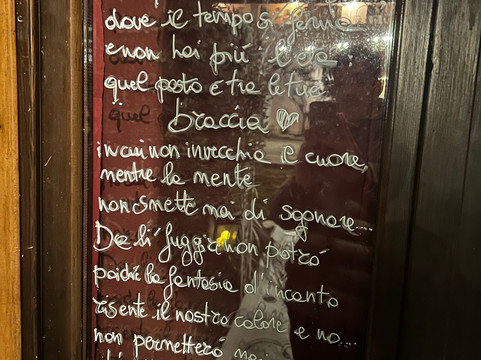 dove il tempo si ferma
e non hai più l'età
quel posto è tra le tue
braccia
in cui non invecchia il cuore,
mentre la mente
non smette mai di sognare...
Da lì fuggir non potrò
poiché la fantasia d'incanto
risente il nostro calore e no...
non permetterò mai